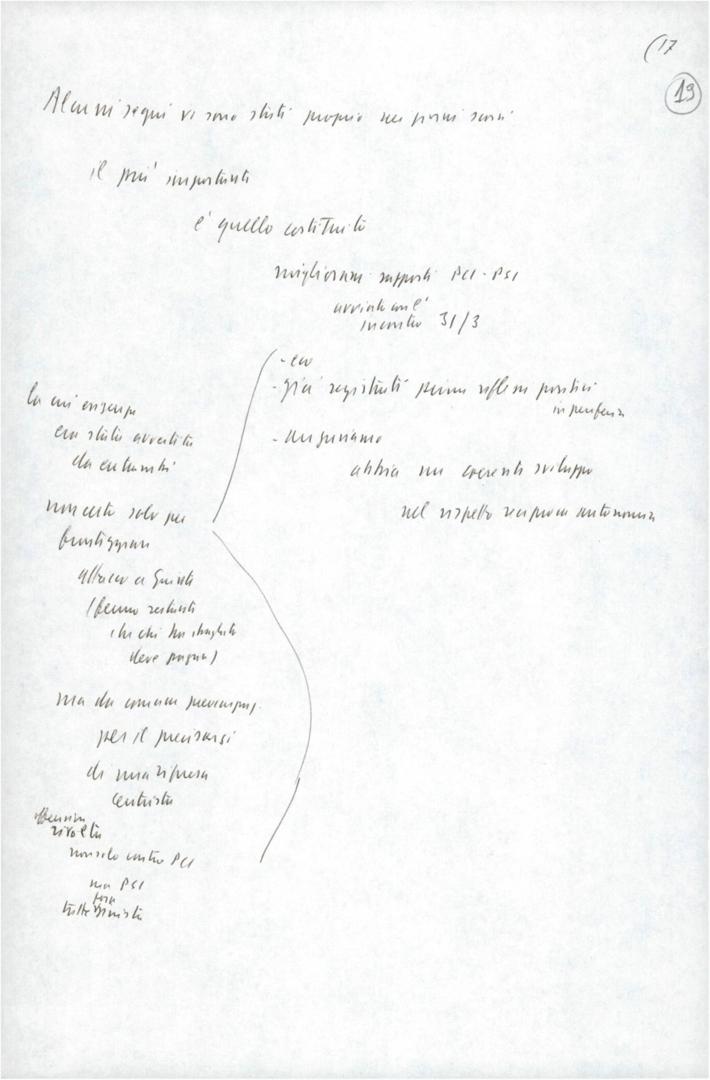 (17
19
Alcuni segni vi sono stati proprio nei giorni scorsi
il più importante
è quello costituito
miglioram rapporti PCI - PSI
avviato con l'
incontro 31/3
- ciò
- già registrati primi riflessi positivi
in periferia
- auguriamo
abbia un coerente sviluppo
nel rispetto reciproca autonomia
la cui esigenza
era stata avvertita
da entrambi
non certo solo per
fronteggiare
attacco a Giunte
(fermo restando
che chi ha sbagliato
deve pagare)
ma da comune preoccupaz.
per il precisarsi
di una ripresa
centrista
offensiva
rivolta
non solo contro PCI
ma PSI
tutta sinistra